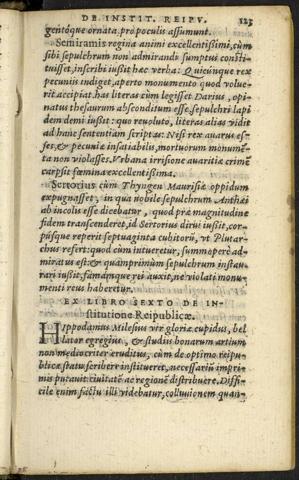 DE INSTIT. REIPV. 123
gentóque ornata pro poculis assumunt.
Semiramis regina animi excellentissimi, cùm
sibi sepulchrum non admirandi sumptus consti-
tuisset, inscribi iußit hæc verba: Quicunque rex
pecuniis indiget, aperto monumento quod volue-
rit accipiat. has literas cùm legisset Darius, opi-
natus thesaurum absconditum esse, sepulchri lapi
dem demi iußit: quo reuoluto, literas alias vidit
ad hanc sententiam scriptas: Nisi rex auarus es-
ses, & pecuniæ insatiabilis, mortuorum monumẽ-
ta non violasses. Vrbana irrisione auaritiæ crimẽ
carpsit fœmina excellentissima.
Sertorius cùm Thyngen Maurisiæ oppidum
expugnasset, in qua nobile sepulchrum Anthæi
ab incolis esse dicebatur, quod præ magnitudine
fidem transcenderet, id Sertorius dirui iußit, cor-
púsque reperit septuaginta cubitorũ, vt Plutar-
chus refert: quod cùm intueretur, summopere ad-
miratus est: & quamprimùm sepulchrum instau-
rari iußit, famámque rei auxit, ne violati monu-
menti reus haberetur.
EX LIBRO SEXTO DE IN-
stitutione Reipublicæ.
HIppodamus Milesius vir gloriæ cupidus, bel
lator egregius, & studiis bonarum artium
non mediocriter eruditus, cùm de optimo reipu-
blicæ statu scribere institueret, necessariũ impri-
mis putauit ciuitatẽ ac regionẽ distribuere. Diffi-
cile enim factu illi videbatur, colluuionem quan-